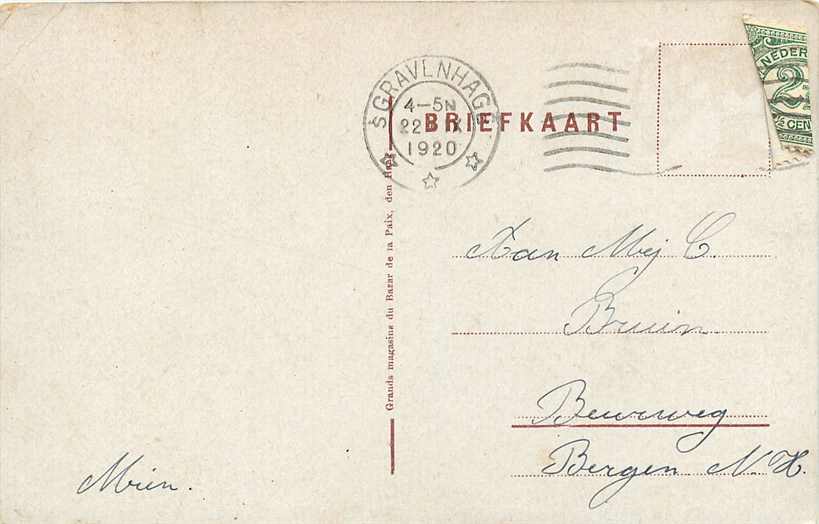 'SGRAVENHAGE
4-5N
22
1920
BRIEFKAART
NEDER
2
½ CEN
Grands magasins du Bazar de la Paix, den Haag
Aan Mej C.
Bruin.
Beurweg
Bergen N.H.
Mien.